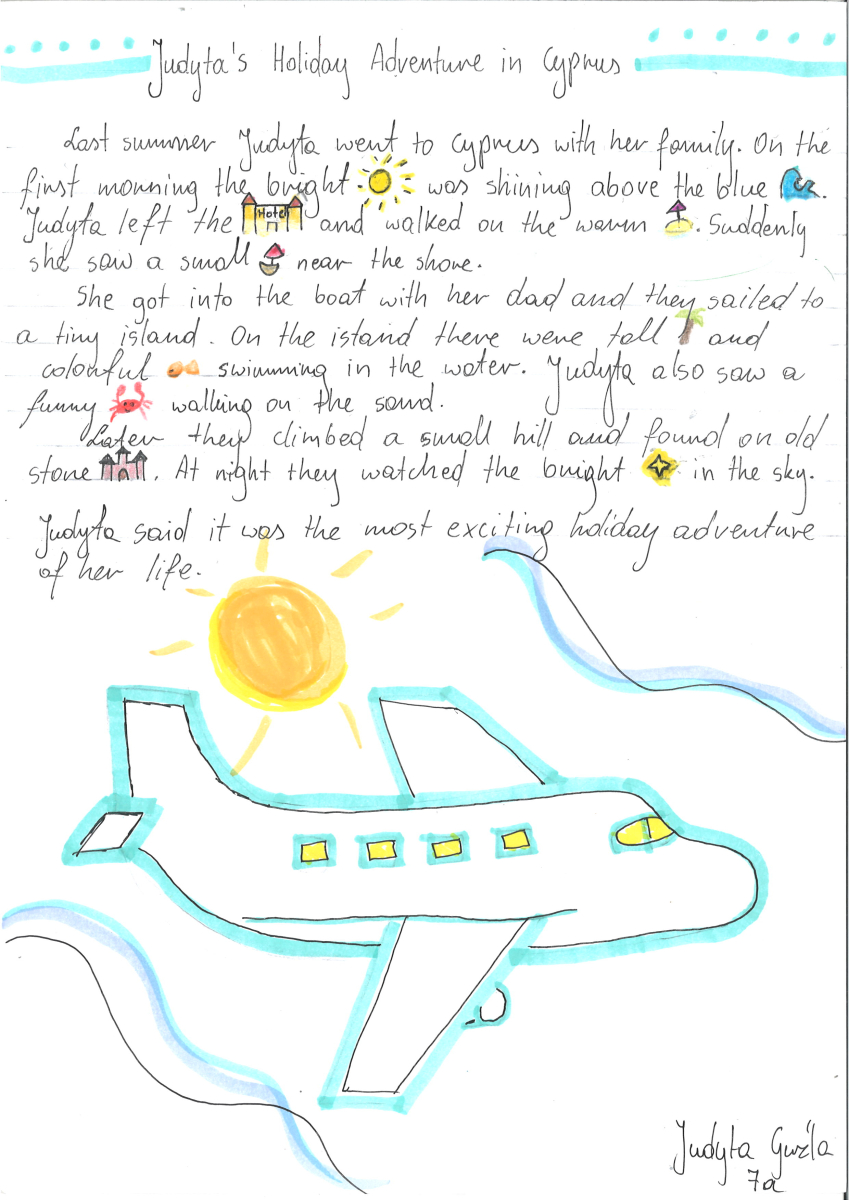 Judyta's Holiday Adventure in Cyprus
Last summer Judyta went to Cyprus with her family. On the
first morning the bright was shining above the blue .
Hotel
Judyta left the and walked on the warm . Suddenly
she saw a small near the shore.
She got into the boat with her dad and they sailed to
a tiny island. On the island there were tall and
colourful swimming in the water. Judyta also saw a
funny walking on the sand.
Later they climbed a small hill and found an old
stone . At night they watched the bright in the sky.
Judyta said it was the most exciting holiday adventure
of her life.
Judyta
7a